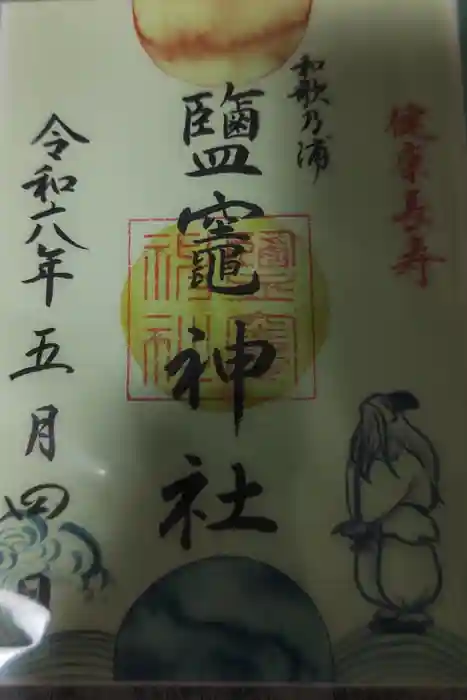 健康長寿
和歌乃浦
鹽竈神社
令和六年五月四日